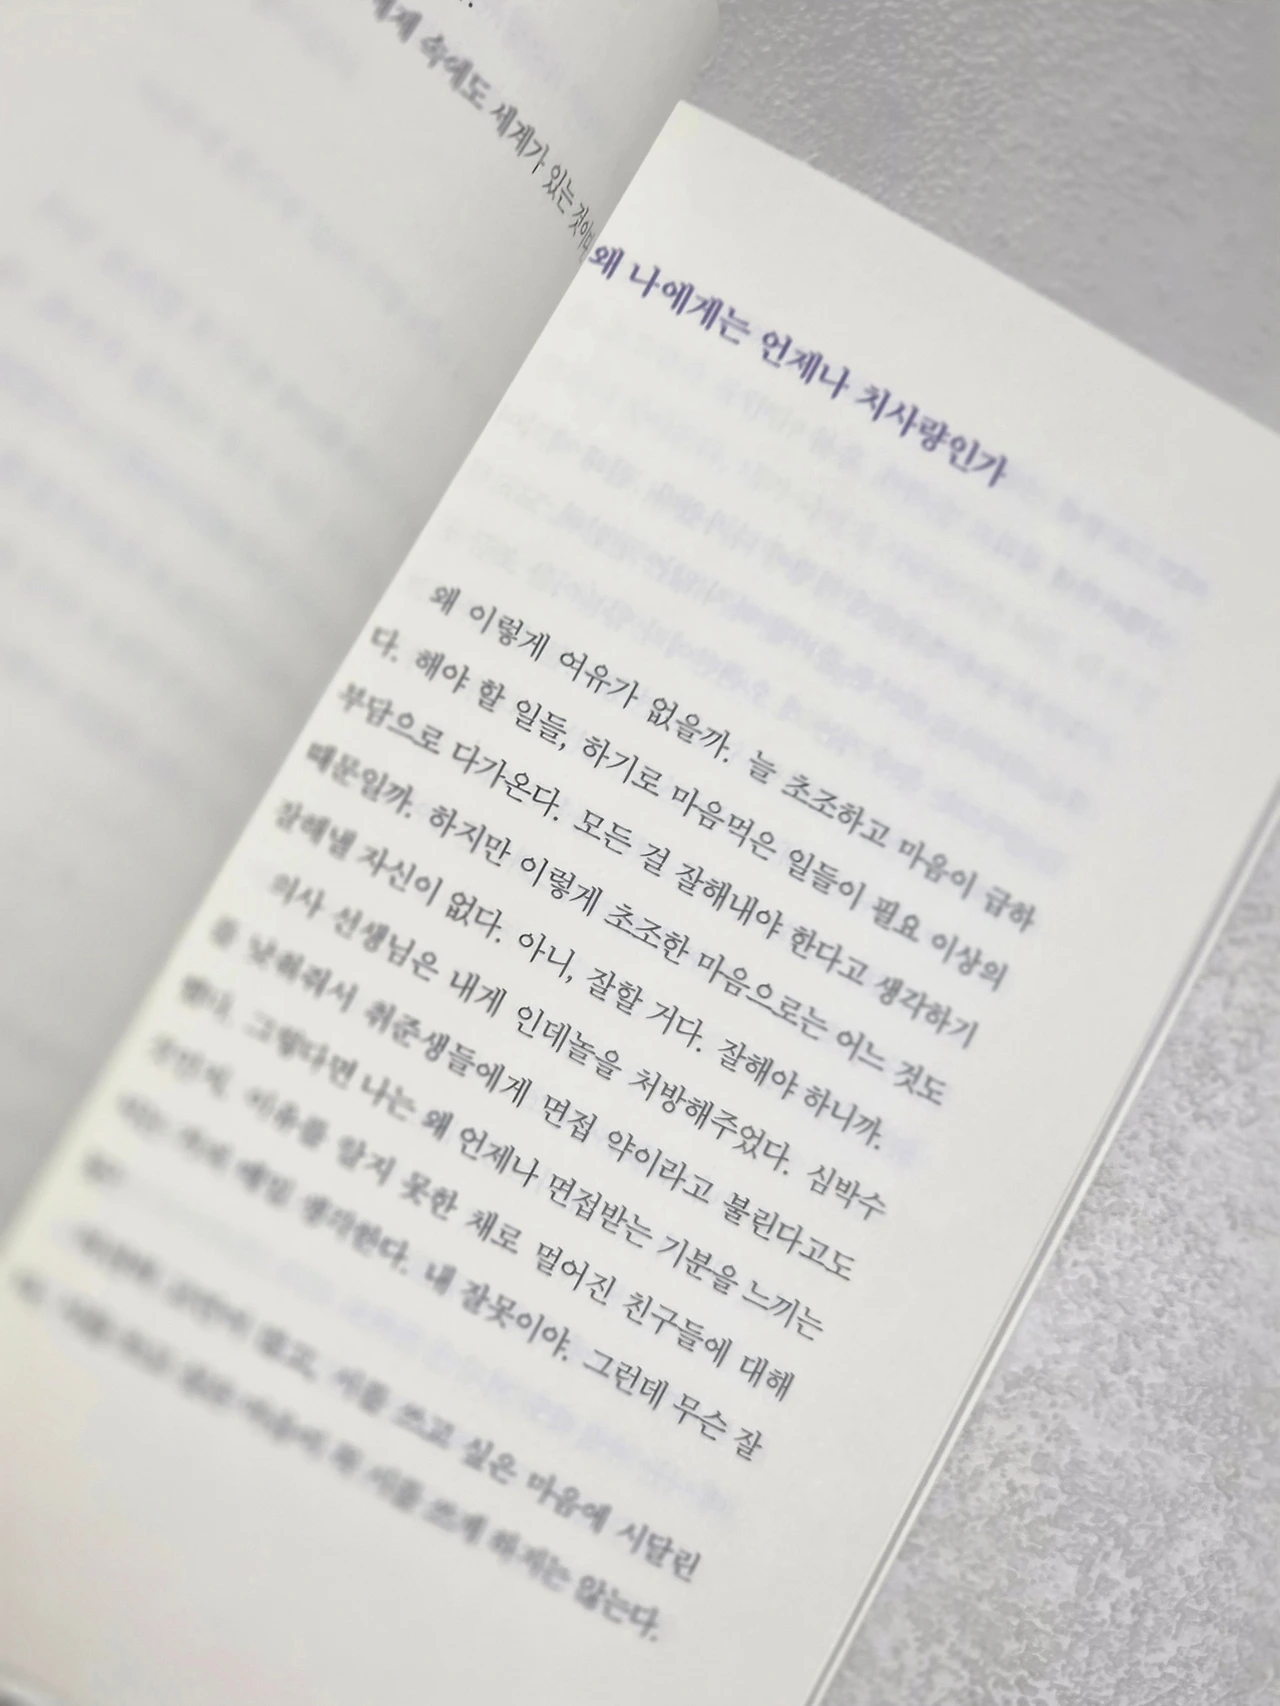 속에도 세계가 있는 것이다
왜 나에게는 언제나 치사량인가
왜 이렇게 여유가 없을까. 늘 초조하고 마음이 급하
다. 해야 할 일들, 하기로 마음먹은 일들이 필요 이상의
부담으로 다가온다. 모든 걸 잘해내야 한다고 생각하기
때문일까. 하지만 이렇게 초조한 마음으로는 어느 것도
잘해낼 자신이 없다. 아니, 잘할 거다. 잘해야 하니까.
의사 선생님은 내게 인데놀을 처방해주었다. 심박수
를 낮춰줘서 취준생들에게 면접 약이라고 불린다고도
했다. 그렇다면 나는 왜 언제나 면접받는 기분을 느끼는
이유를 알지 못한 채로 멀어진 친구들에 대해
매일 생각한다. 내 잘못이야. 그런데 무슨 잘
시를 쓰고 싶은 마음에 시달린
시를 쓰게 하지는 않는다.